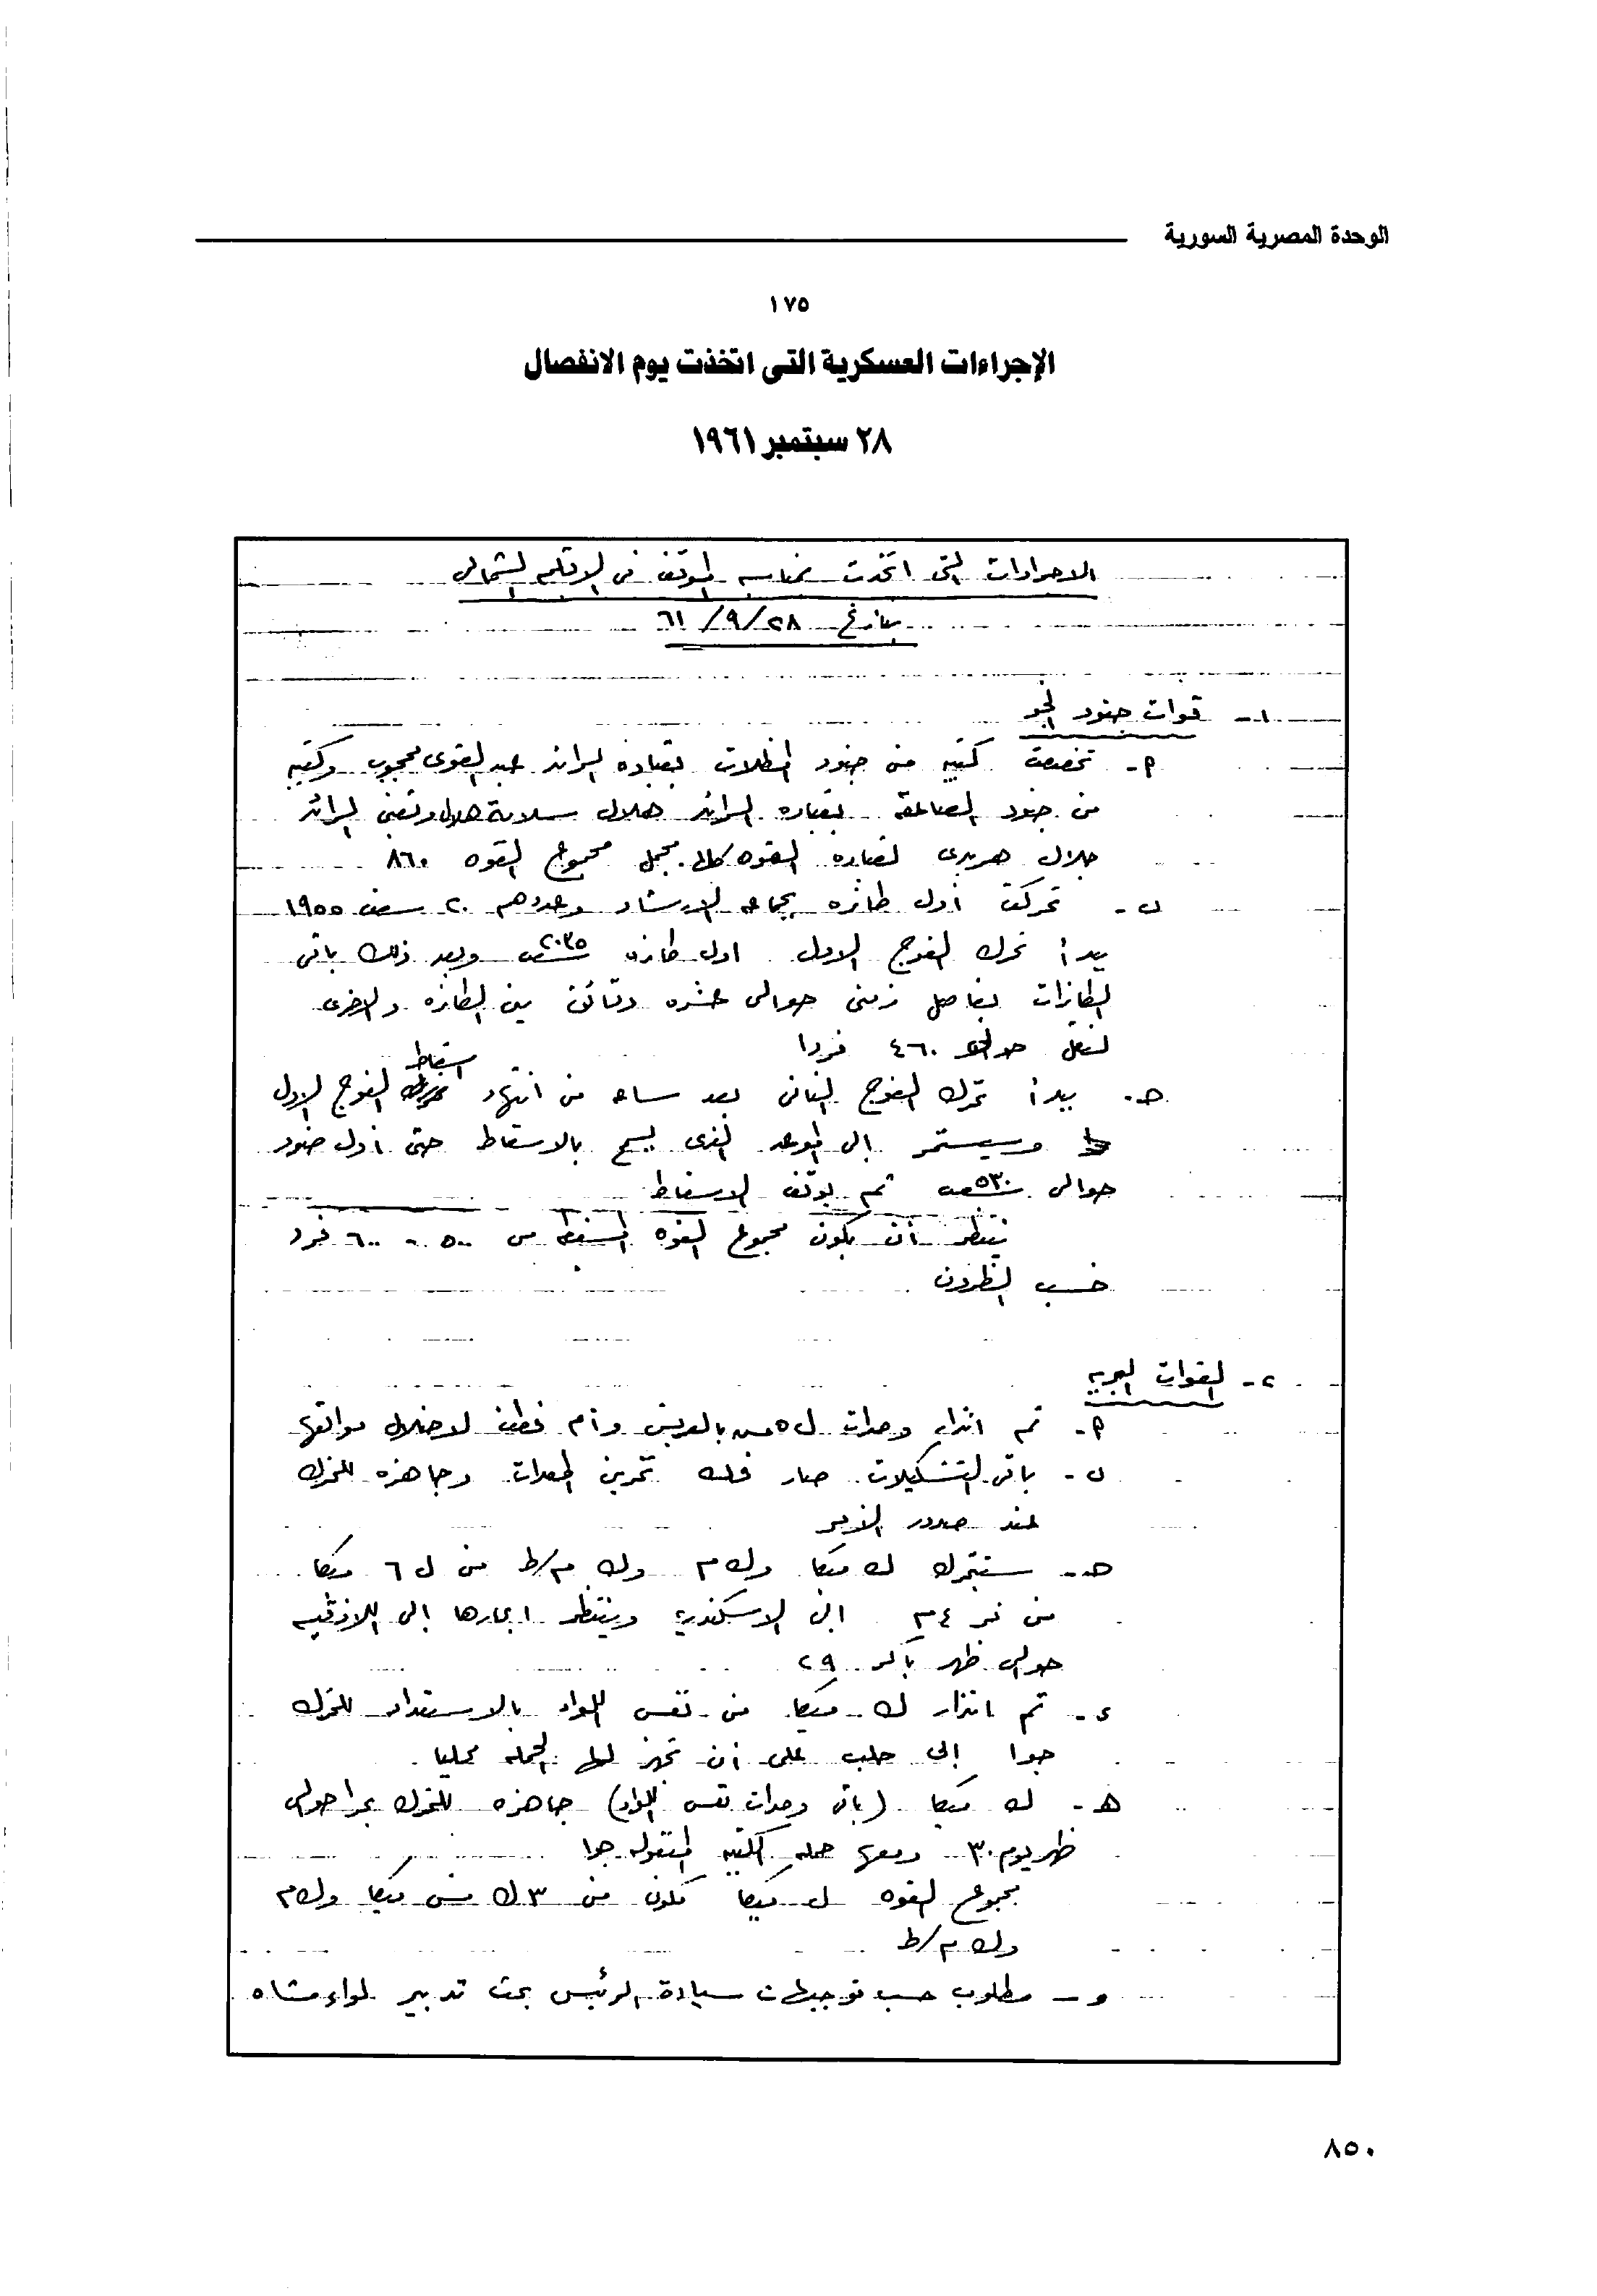 الوحدة المصرية السورية
١٧٥
الإجراءات العسكرية التى اتخذت يوم الانفصال
٢٨ سبتمبر ١٩٦١
الاجراءات التى اتخذت بمناسبة الموقف فى الاقليم الشمالى
بتاريخ ٢٨/٩/٦١
١- قوات جنود الجو
م- تخصصت كتيبه من جنود المظلات بقياده الرائد عبد القوى محجوب وكتيبه
من جنود الصاعقه بقياده الرائد هلال سلامة هلال وتعين الرائد
جلال هريدى لقياده القوه كلها. مجمل مجموع القوه ٨٦٠
ب- تحركت أول طائره بجماعه الارشاد وعددهم ٢٠ سعت ١٩٥٥
يبدأ تحرك الفوج الاول اول طائره سعت ٢٠٣٥ وبعد ذلك باقى
الطائرات بفاصل زمنى حوالى عشره دقائق بين الطائره والاخرى
لنقل حوالى ٤٦٠ فردا
حـ- يبدأ تحرك الفوج الثانى بعد ساعه من انتهاء اسقاط الفوج الاول
وسيستمر إلى الموعد الذى يسمح بالاسقاط حتى أول ضوء
حوالى سعت ٥٣٠ ثم يوقف الاسقاط
ينتظر أن يكون مجموع القوه المسقطه من ٥٠٠ - ٦٠٠ فرد
حسب الظروف
٢- القوات البريه
م- تم انذار وحدات ل ٥ مش بالعريش و لاحتلال مواقعها
ب- باقى التشكيلات صار فك تخزين المعدات وجاهزه للتحرك
عند صدور الأمر
حـ- ستتحرك ك ميكا وك م وك م/ط من ل ٦ ميكا
من الى الاسكندرية وينتظر ابحارها إلى اللاذقيه
حوالى ظهر باكر ٢٩
د- تم انذار ك ميكا من نفس اللواء بالاستعداد للتحرك
جوا إلى حلب على أن تجهز لها الحمله محليا.
هـ- ك ميكا (باقى وحدات نفس اللواء) جاهزه للتحرك بحرا حوالى
ظهر يوم ٣٠ ومعها حمله الكتيبه المنقوله جوا
مجموع القوه ل ميكا مكون من ٣ ك مش ميكا وك م
وك م/ط
و- مطلوب حسب توجيهات سيادة الرئيس بحث تدبير لواء مشاه
٨٥٠